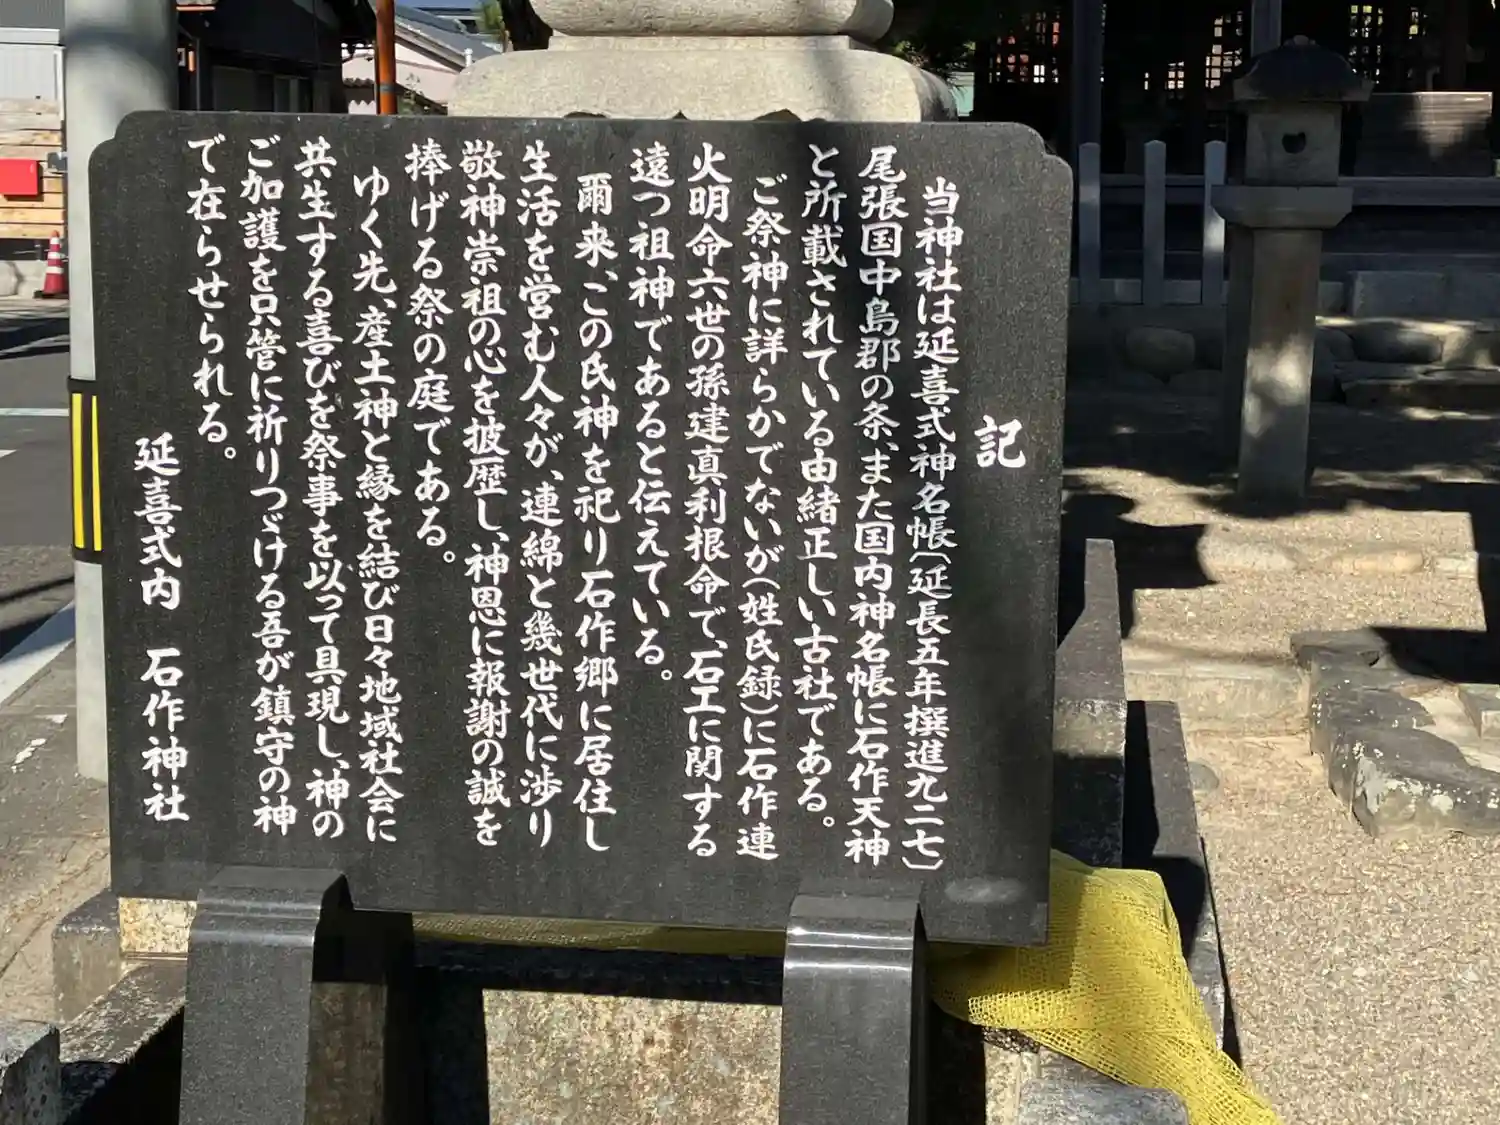 記
当神社は延喜式神名帳〔延長五年撰進九二七〕
尾張国中島郡の条、また国内神名帳に石作天神
と所載されている由緒正しい古社である。
ご祭神に詳らかでないが（姓氏録）に石作連
火明命六世の孫建真利根命で、石工に関する
遠つ祖神であると伝えている。
爾来、この氏神を祀り石作郷に居住し
生活を営む人々が、連綿と幾世代に渉り
敬神崇祖の心を披歴し、神恩に報謝の誠を
捧げる祭の庭である。
ゆく先、産土神と縁を結び日々地域社会に
共生する喜びを祭事を以って具現し、神の
ご加護を只管に祈りつゞける吾が鎮守の神
で在らせられる。
延喜式内　石作神社